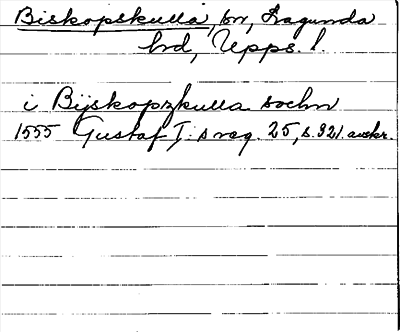 Biskopskulla, sn, Lagunda
hd, Upps. l.
i Bijskopzkulla sochn
1555 Gustaf I:s reg. 25, s. 321. avskr.